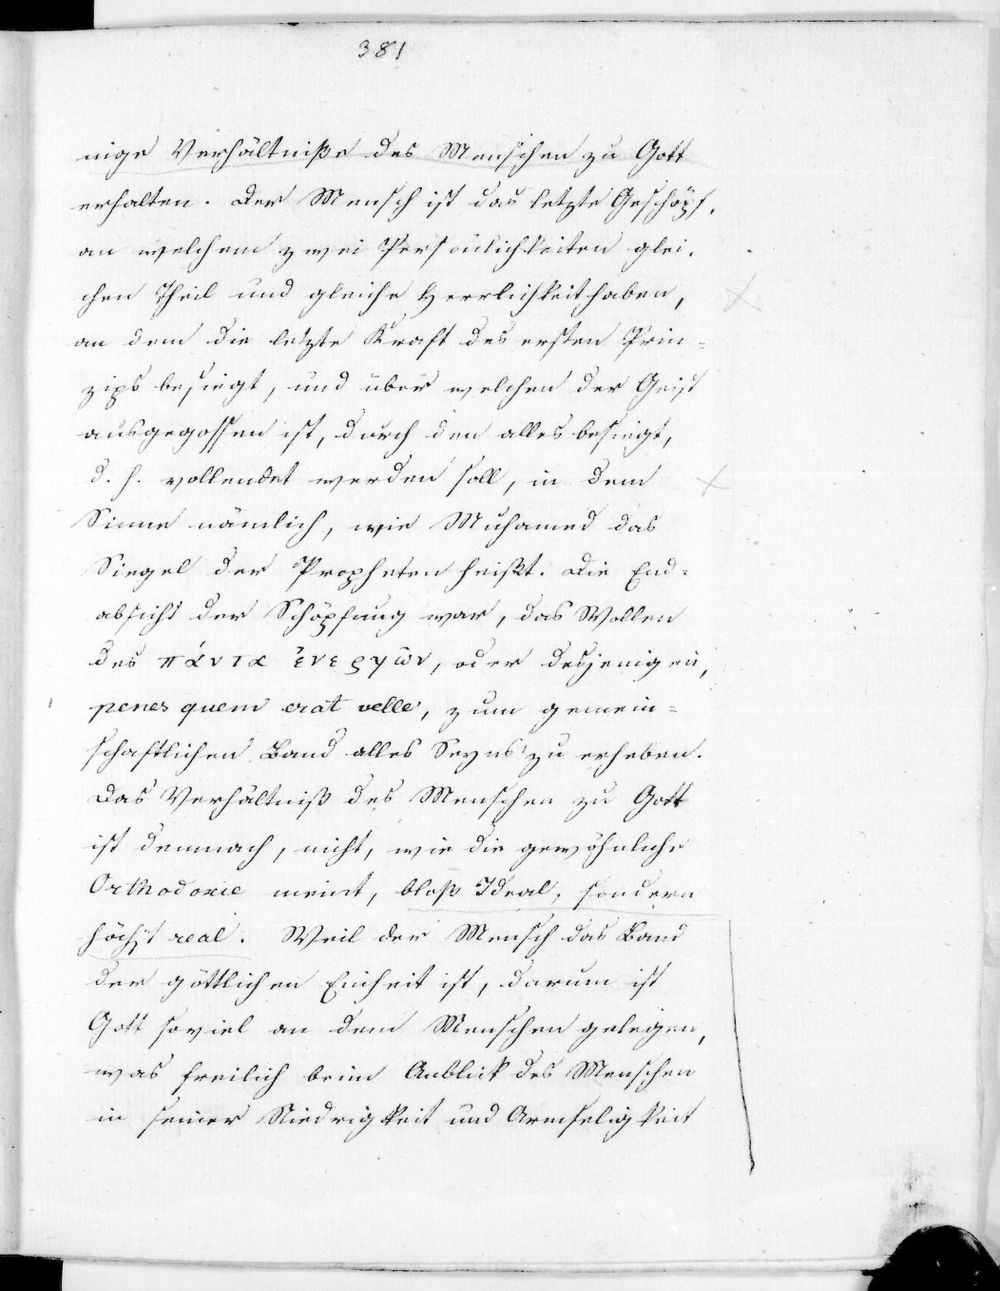 381
nige Verhältniße des Menschen zu Gott
erhalten. Der Mensch ist das letzte Geschöpf,
an welchem zwei Persönlichkeiten glei-
chen Theil und gleiche Herrlichkeit haben,
an dem die letzte Kraft des ersten Prin=
zips besiegt, und über welchen der Geist
ausgegossen ist, durch den alles besiegt,
d. h. vollendet werden soll, in dem
Sinne nämlich, wie Muhamed das
Siegel der Propheten heißt. Die End=
absicht der Schöpfung war, das Wollen
des πάντα ἐνεργῶν, oder desjenigen,
penes quem erat velle, zum gemein=
schaftlichen Band alles Seyns zu erheben.
Das Verhältniß des Menschen zu Gott
ist demnach, nicht, wie die gewöhnliche
Orthodoxie meint, bloß Ideal, sondern
höchst real. Weil der Mensch das Band
der göttlichen Einheit ist, darum ist
Gott soviel an dem Menschen gelegen,
was freilich beim Anblick des Menschen
in seiner Niedrigkeit und Armseligkeit